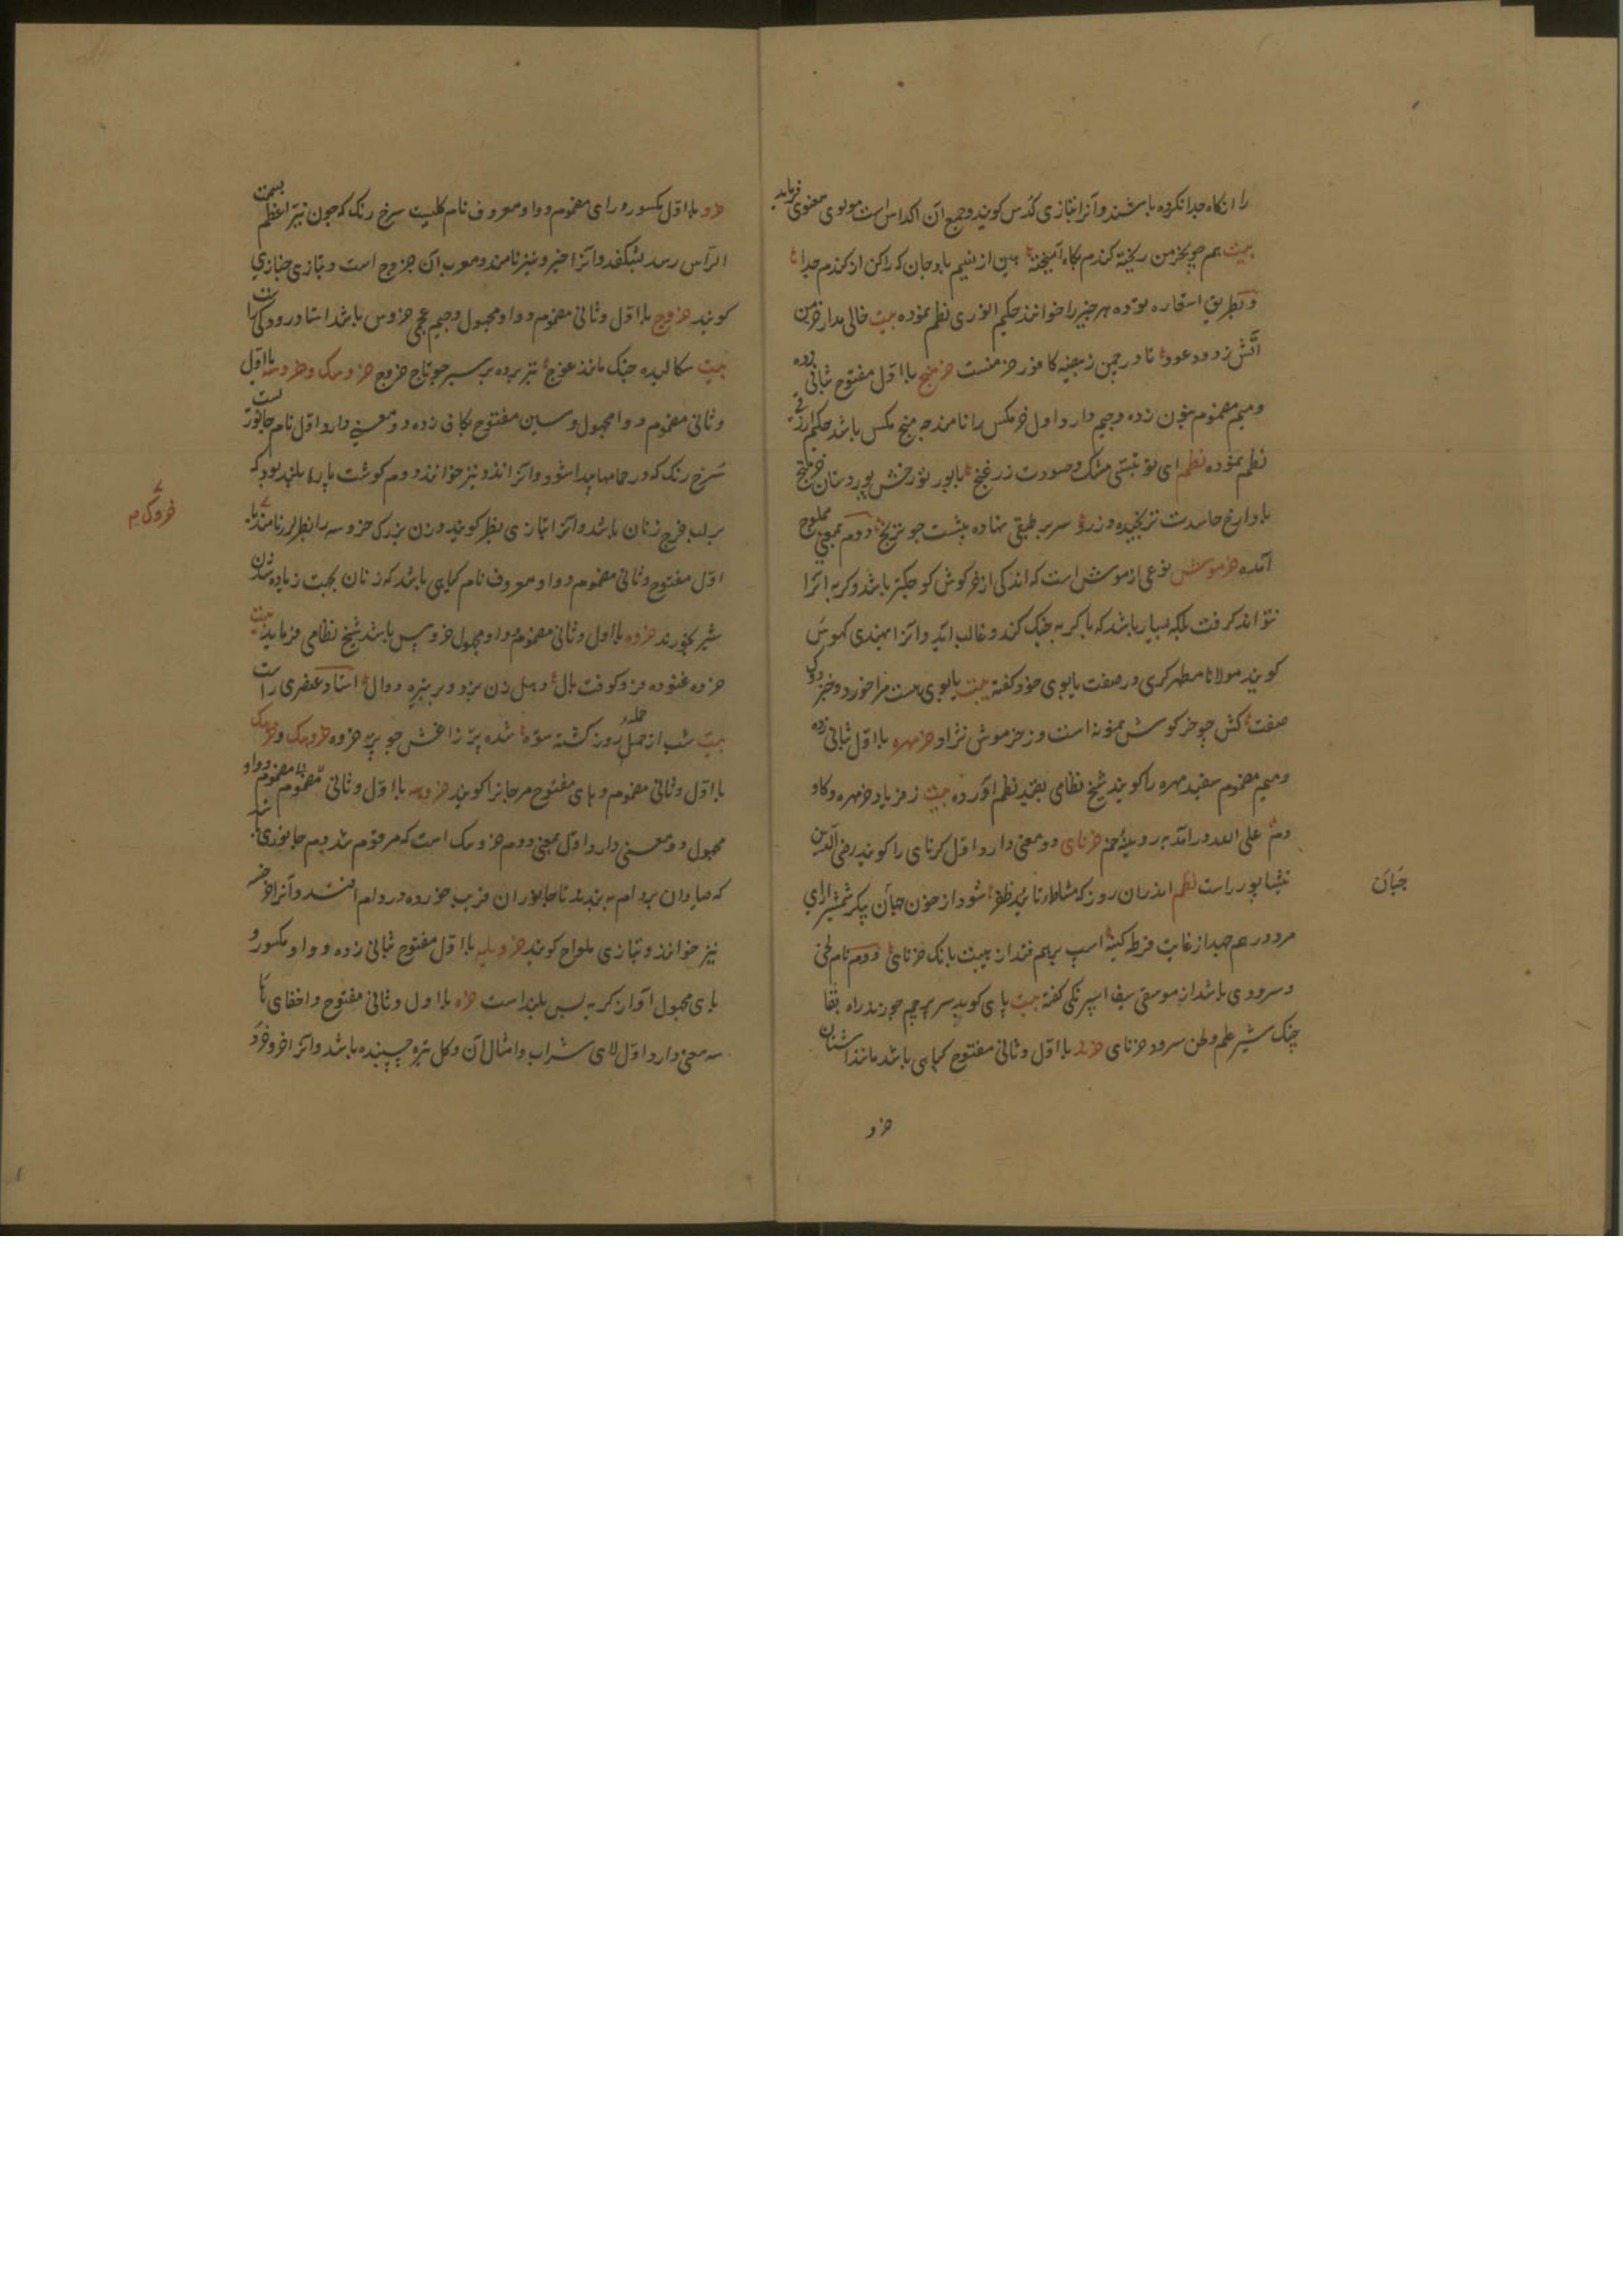 را از کاه جدا نکرده باشند و آنرا بتازی کدس کویند و جمع آن اکداس است مولوی معنوی فرماید
بیت هم چو بخرمن ریخته کندم بکاه آمیخته هین از نسیم باد جان که را کن از کندم جدا
و بطریق استعاره توده هر چیز را خوانند حکیم انوری نظم نموده بیت خالی مدار خرمن
آتش ز دود عود تا در چمن ز بیضه کافور خرمنست خرمنج با اول مفتوح بثانی زده
و میم مضموم بنون زده و جیم دارد اول خر مکس را نامند چه منج مکس باشد حکیم ازرقی
نظم نموده نظم ای تو مشک و صورت زر با تو رخش پور دستان خرمنج
با داراخ حاسدت ترنجیده و زرد سر بر طبقی نهاده پیشت چو ترنج دوم بمعنی
آمده خرموش نوعی از موش است که اندکی از خرکوش کوچکتر باشد و کربه آنرا
نتواند کرفت بلکه بسیار باشد که با کربه جنک کند و غالب آید و آنرا بهندی کهوس
کویند مولانا مطهر کری در صفت یابوی خود کفته بیت یابوی هست مرا خورد و خر دوک
صفت کش چو خرکوش نمونه است و ز خرموش نژاد خرمهره با اول بثانی زده
و میم مضموم سفید مهره را کویند شیخ نظامی بقید نظم آورده بیت ز فریاد خرمهره و کاو
دم علی الله درآمد ز رویینه خم خرنای دو معنی دارد اول کرنای را کویند رضی الدین
نیشاپور راست نظم اندران روز که مشاطه تایید ظفر شود از خون جبان پیکر شمشیر آرای
مرد در هم جهد از غایت فرط کینه اسب برهم فتد از هیبت بانک خرنای دوم نام لحنی
و سرودی باشد از موسقی سیف اسپرنکی کفته بیت پای کوبد سر پرچم چو زند راه بقا
چنک شیر علم و لحن سرود خرنای خرند با اول و ثانی مفتوح کیاهی باشد مانند اشنان
خرو
جبان
خرو با اول مکسور و رای مضموم و واو معروف نام کلیست سرخ رنک که چون نیر اعظم بسمت
الرأس رسد بشکفد و آنرا خیرو نیز نامند و معرب آن خروج است و بتازی خبازی
کویند خروج با اول و ثانی مضموم و واو مجهول و جیم عجمی خروس باشد استاد رودکی راست
بیت سکالیده جنک مانند غوج تبر برده بر سر چو تاج خروج خروسک و خروسه با اول
و ثانی مضموم و واو مجهول و سین مفتوح بکاف زده دو معنی دارد اول نام جانوریست
سرخ رنک که در حمامها پیدا شود و آنرا نیز خوانند دوم کوشت پاره بلند بود که
بر لب فرج زنان باشد و آنرا بتازی بظر کویند و زن بزرک خروسه را بظر نامند با
اول مفتوح و ثانی مضموم و واو معروف نام کیاهی باشد که زنان بجهت زیاده شدن
شیر بخورند خروه با اول و ثانی مضموم و واو مجهول خروس باشد شیخ نظامی فرماید بیت
خروه غنوده فرو کوفت بال دهل زن بزد بر تبیره دوال استاد عنصری راست
بیت شب از حمله روز کشته ستوه شده پر زاغش چو پر خروه خروهک و خرهک
با اول و ثانی مضموم و های مفتوح مرجانرا کویند خروهه با اول و ثانی مضموم و واو
مجهول دو معنی دارد اول بمعنی دوم خروسک است که مرقوم شد دوم جانوری باشد
که صیادان بر دام بندند تا جانوران فریب خورده در دام افتند و آنرا خرخسه
نیز خوانند و بتازی ملواح کویند خرویله با اول مفتوح بثانی زده و واو مکسور و
یای مجهول آواز کریه بس بلند است خره با اول و ثانی مفتوح و اخفای ها
سه معنی دارد اول لای شراب و امثال آن و کل تیره چسپنده باشد و آنرا خرو خرد